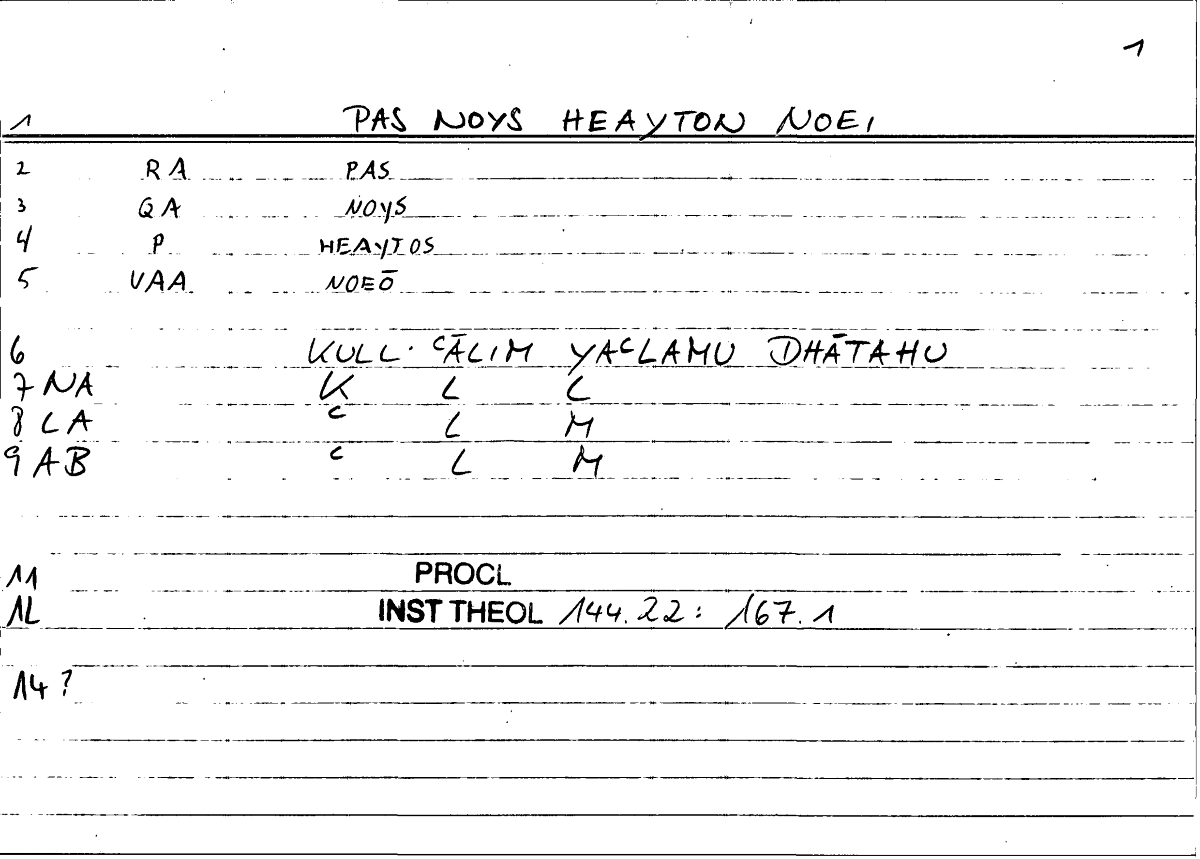 1
1 PAS NOYS HEAYTON NOEI
2 RA PAS
3 QA NOYS
4 P HEAYTOS
5 VAA NOEŌ
6 KULL. ᶜĀLIM YAᶜLAMU DHĀTAHU
7 NA K L L
8 LA ᶜ L M
9 AB ᶜ L M
11 PROCL
12 INST THEOL 144.22: 167.1
14 ?